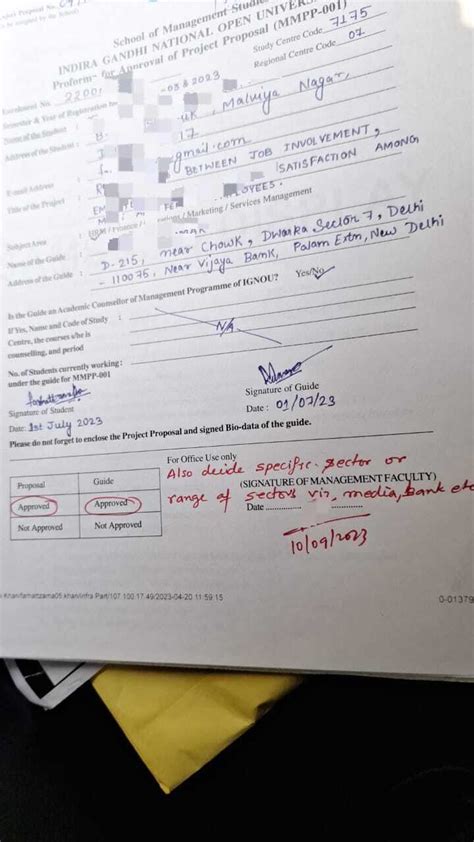 School of Management Studies
INDIRA GANDHI NATIONAL OPEN UNIVERS
Proforma for Approval of Project Proposal (MMPP-001)
Study Centre Code 7175
Regional Centre Code 07
Enrolment No. 2200
Semester & Year of Registration
03 & 2023
Name of the Student :
Malviya Nagar,
Address of the Student :
17
E-mail Address :
gmail.com
Title of the Project :
BETWEEN JOB INVOLVEMENT,
SATISFACTION AMONG
EM
LOYEES.
Subject Area :
HRM / Finance / / Marketing / Services Management
Name of the Guide :
Address of the Guide : D-215, near Chowk, Dwarka Sector 7, Delhi
- 110075, Near Vijaya Bank, Palam Extn, New Delhi
Is the Guide an Academic Counsellor of Management Programme of IGNOU? Yes/No
If Yes, Name and Code of Study :
Centre, the courses s/he is
counselling, and period
N/A
No. of Students currently working :
under the guide for MMPP-001
Signature of Student
Signature of Guide
Date: 1st July 2023
Date : 01/07/23
Please do not forget to enclose the Project Proposal and signed Bio-data of the guide.
For Office Use only
Proposal Guide
Approved Approved
Not Approved Not Approved
Also decide specific sector or
(SIGNATURE OF MANAGEMENT FACULTY)
range of sectors viz, media, bank etc
Date
10/09/2023
2023-04-20 11:59:15
G-01379